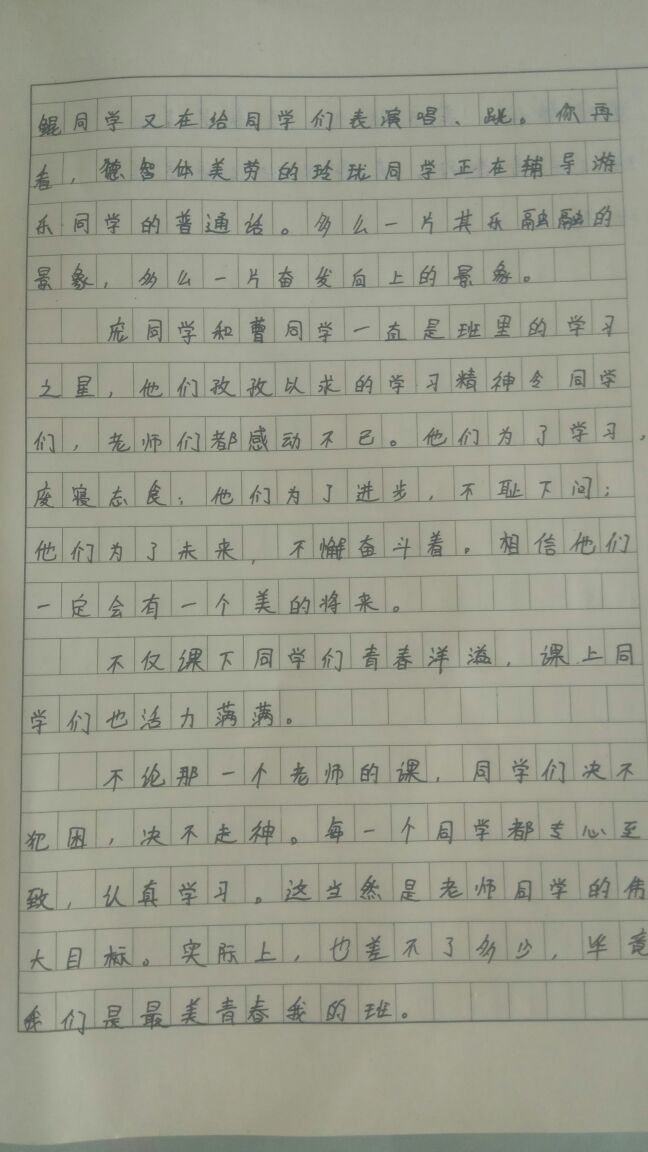 鲲同学又在给同学们表演唱、跳。你再
看，德智体美劳的玲珑同学正在辅导游
乐同学的普通话。多么一片其乐融融的
景象，多么一片奋发向上的景象。
庞同学和曹同学一直是班里的学习
之星，他们孜孜以求的学习精神令同学
们，老师们都感动不已。他们为了学习，
废寝忘食；他们为了进步，不耻下问；
他们为了未来，不懈奋斗着。相信他们
一定会有一个美的将来。
不仅课下同学们青春洋溢，课上同
学们也活力满满。
不论那一个老师的课，同学们决不
犯困，决不走神。每一个同学都专心至
致，认真学习。这当然是老师同学的伟
大目标。实际上，也差不了多少，毕竟
我们是最美青春我的班。